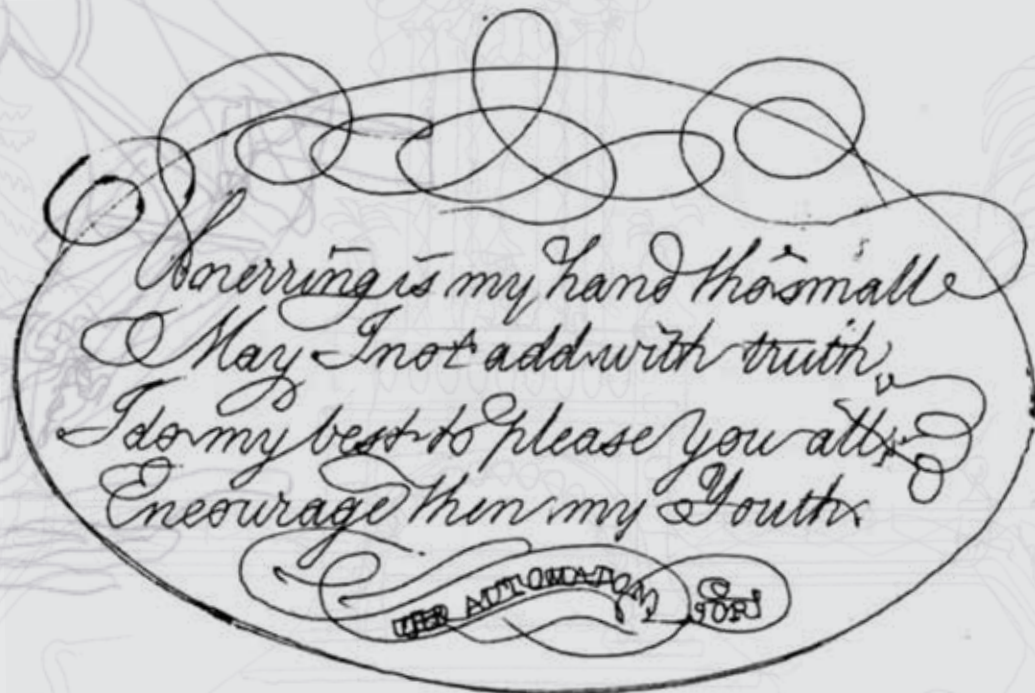 Unerring is my hand tho' small
May I not add with truth,
I do my best to please you all;
Encourage then my Youth.
THE AUTOMATON